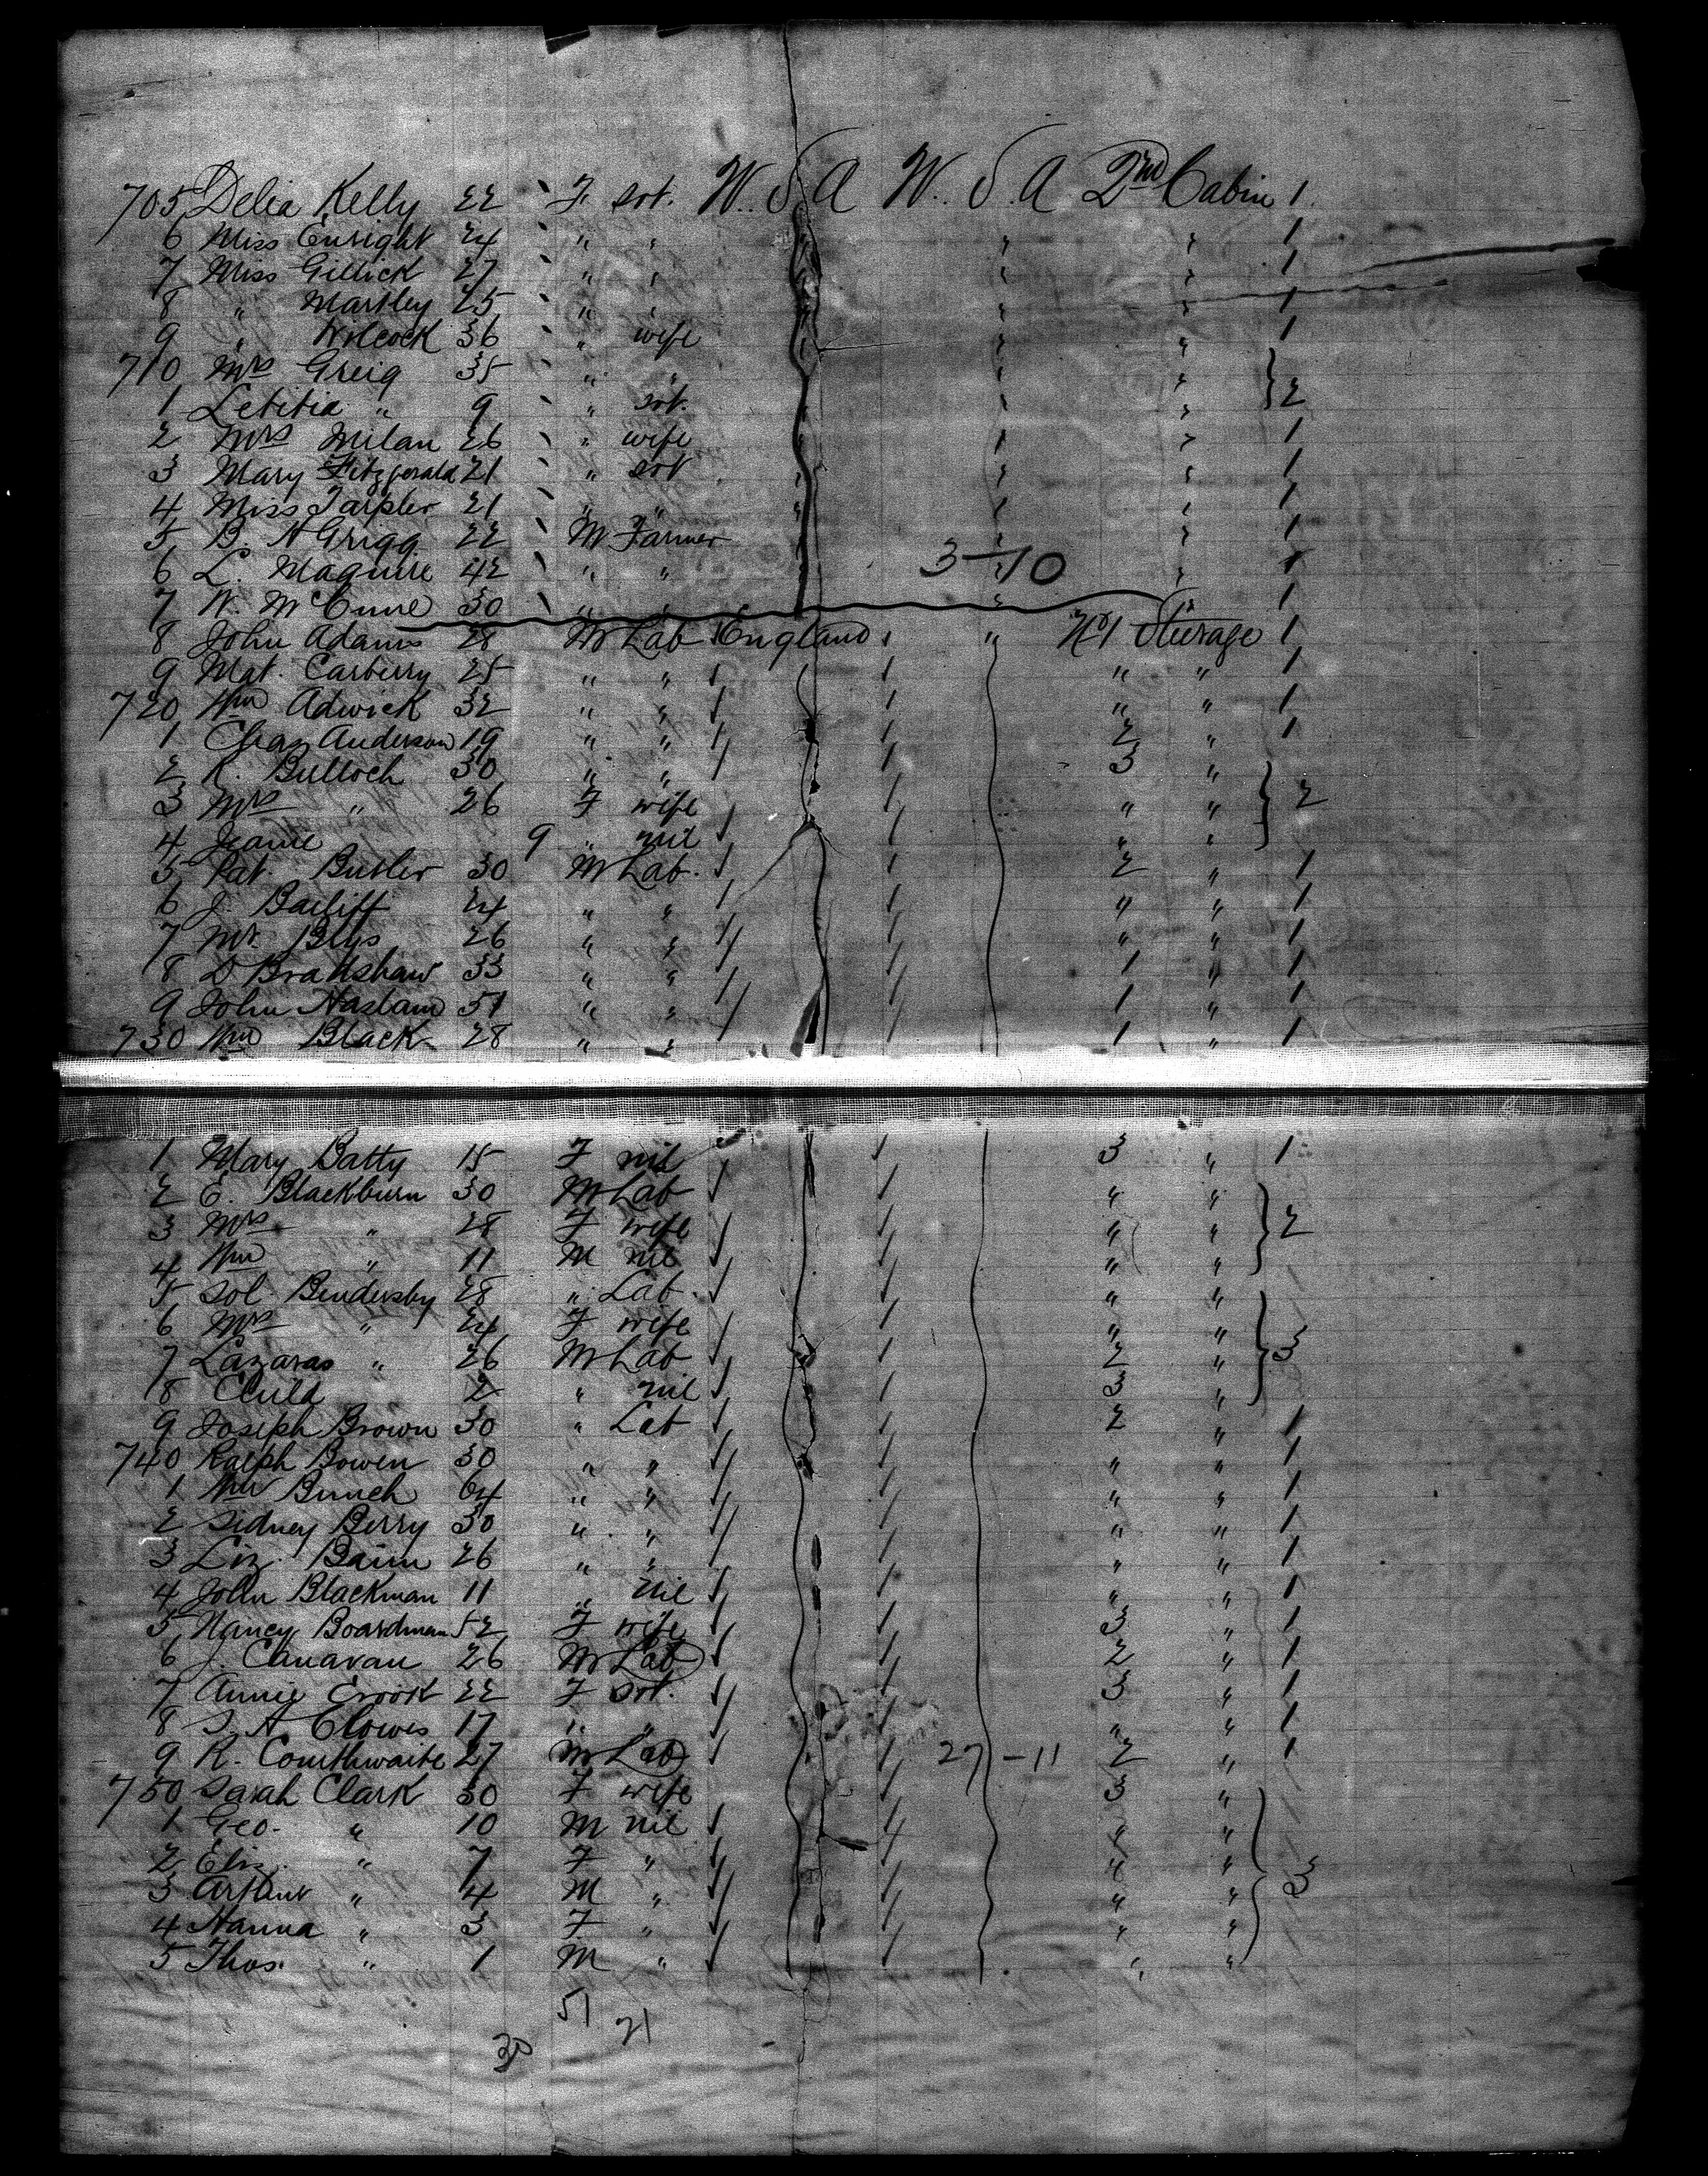 705 Delia Kelly 22 F. Sot. U.S.A U.S.A 2nd Cabin 1.
6 Miss Enright 24 " " " " 1
7 Miss Gillick 27 " " " " 1
8 " Martley 25 " " " " 1
9 " Wilcock 36 " wife " " 1
710 Mrs Greig 35 " " " "
1 Letitia " 9 " sot. " " } 2
2 Mrs Milan 26 " wife " " 1
3 Mary Fitzgerald 21 " sot " " 1
4 Miss 21 " " " " 1
5 B. N Grigg 22 M Farmer " " 1
6 L. Maguire 42 " " 3-10 " 1
7 W. McCune 30 " " " " 1
8 John Adams 28 M Lab England " No 1 Steerage 1
9 Mat. Carberry 25 " " " " 1
720 Wm Adwick 32 " " " " 1
1 Chas Anderson 19 " " 2 " 1
2 R. Bulloch 30 " " 3 "
3 Mrs " 26 F wife " " } 2
4 Jeanie 9 " nil " "
5 Pat. Butler 30 M Lab. 2 " 1
6 J. Bailiff 24 " " " " 1
7 Mr. 26 " " " " 1
8 D Bradshaw 33 " " 1 " 1
9 John Haslam 51 " " 1 " 1
730 Wm Black 28 " " 1 " 1
1 Mary Batty 15 F nil 3 " 1
2 E. Blackburn 30 M Lab " "
3 Mrs " 28 F wife " " } 2
4 Wm " 11 M nil " "
5 Sol. Bendersby 28 " Lab " "
6 Mrs " 24 F wife " "
7 Lazaras " 26 M Lab 2 " } 3
8 Child 2 " nil 3 "
9 Joseph Brown 30 " Lab 2 " 1
740 Ralph Bowen 30 " " " " 1
1 Wm Bunch 64 " " " " 1
2 Sidney Berry 30 " " " " 1
3 Liz. 26 " " " " 1
4 John Blackman 11 " nil " " 1
5 Nancy Boardman 52 F wife 3 " 1
6 J. Canavan 26 M Lab 2 " 1
7 Annie 22 F Sot. 3 " 1
8 S. A. Clowes 17 " " " " 1
9 R. Courthwaite 27 M Lab 27-11 2 " 1
750 Sarah Clark 30 F wife 3 "
1 Geo. " 10 M nil " "
2 Eliz. " 7 F " " "
3 Arthur " 4 M " " " } 3
4 Hanna " 3 F " " "
5 Thos. " 1 M " " "
51 21
30